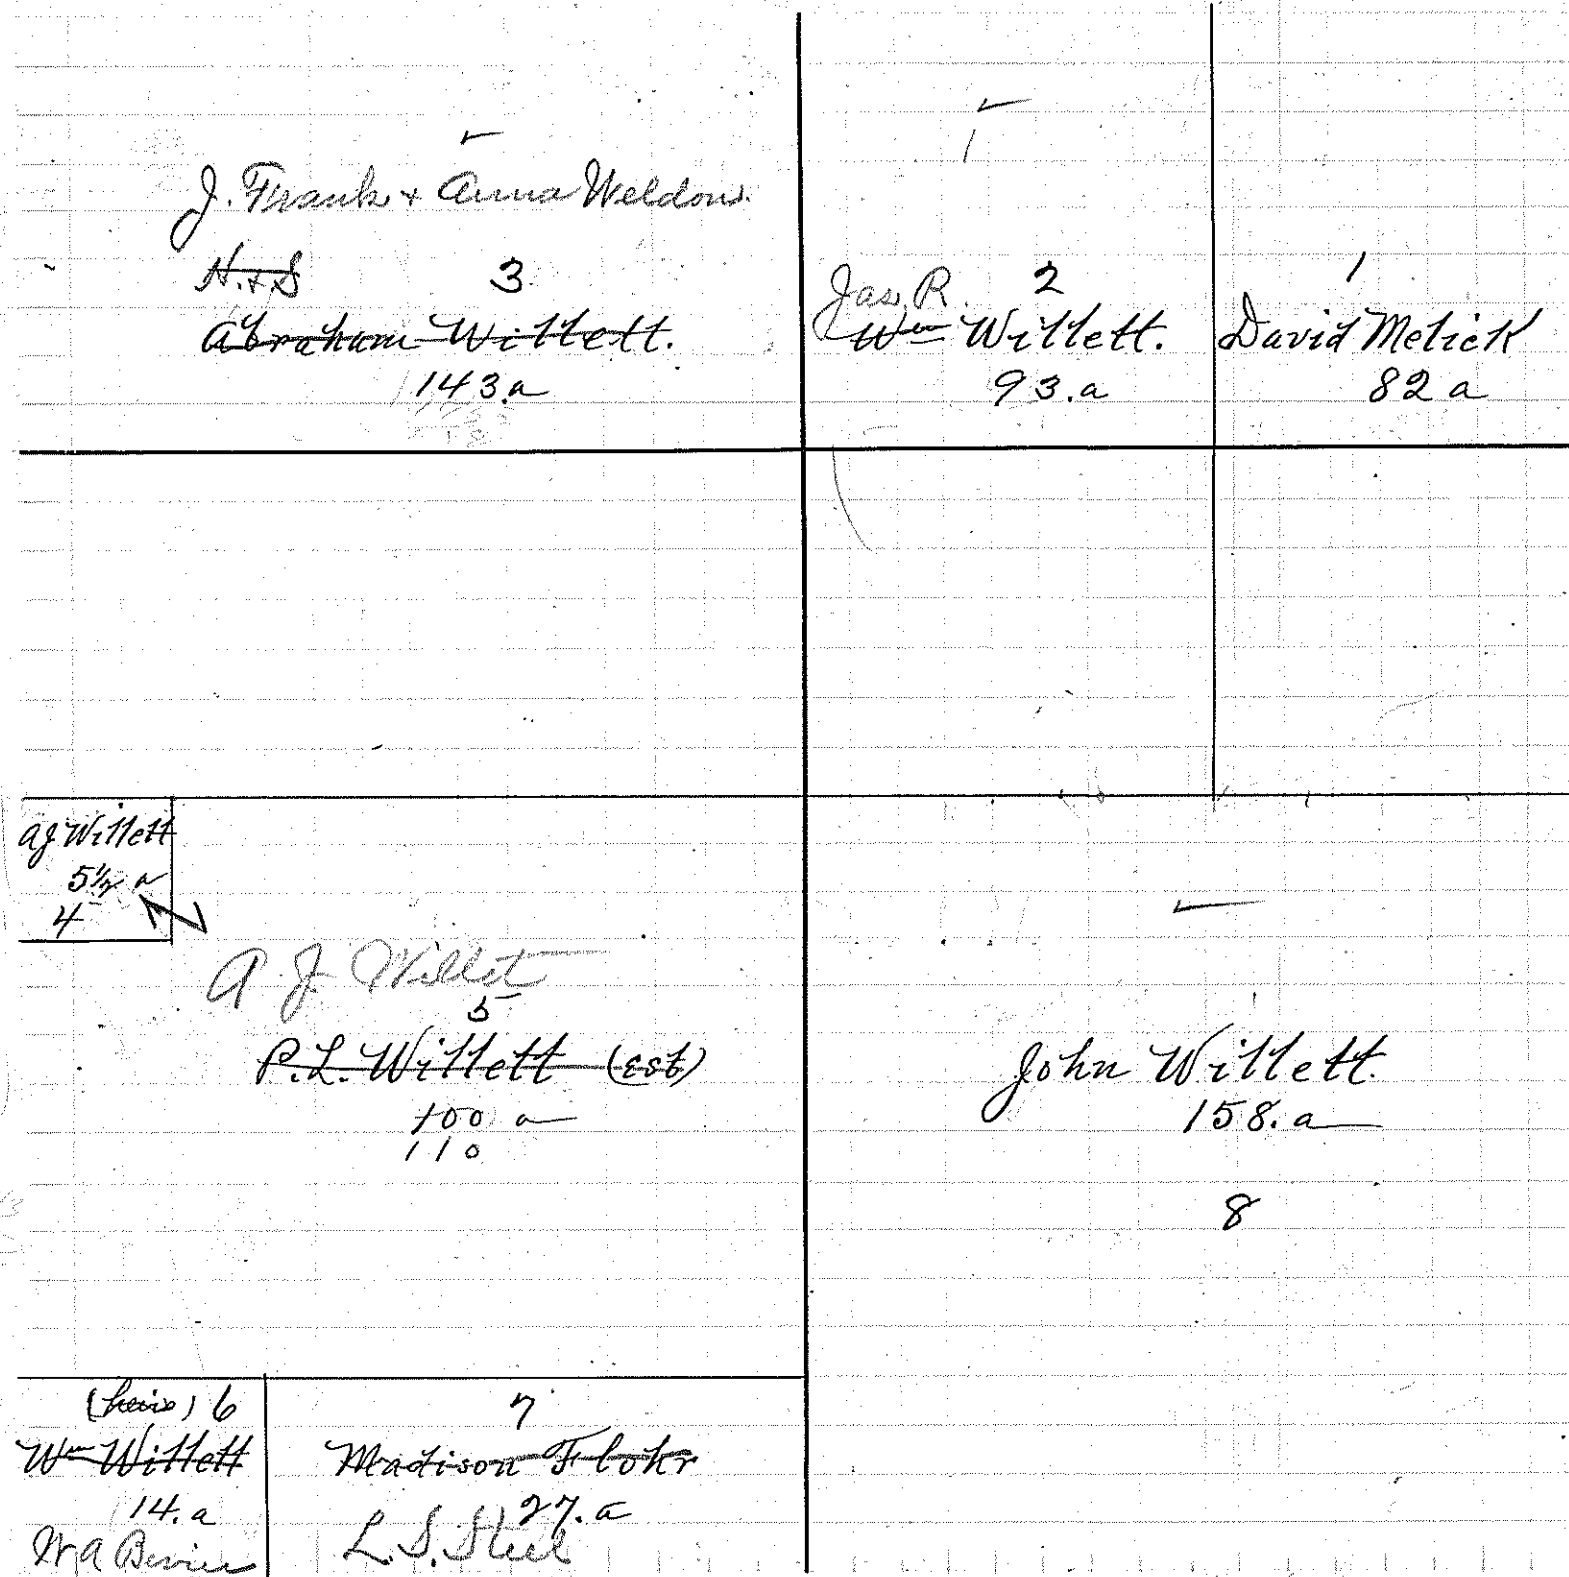 J. Frank + Anna Weldon.
N. + S 3
Abraham Willett.
143.a
Jas. R. 2
Wm Willett.
93.a
1
David Melick
82 a
AJ Willett
5½ a
4
A. J. Willet
5
P. L. Willett (Est)
100 a
110
John Willett.
158. a
8
(heirs) 6
Wm Willett
14. a
W A
7
Madison Flohr
27. a
L. S. Steel